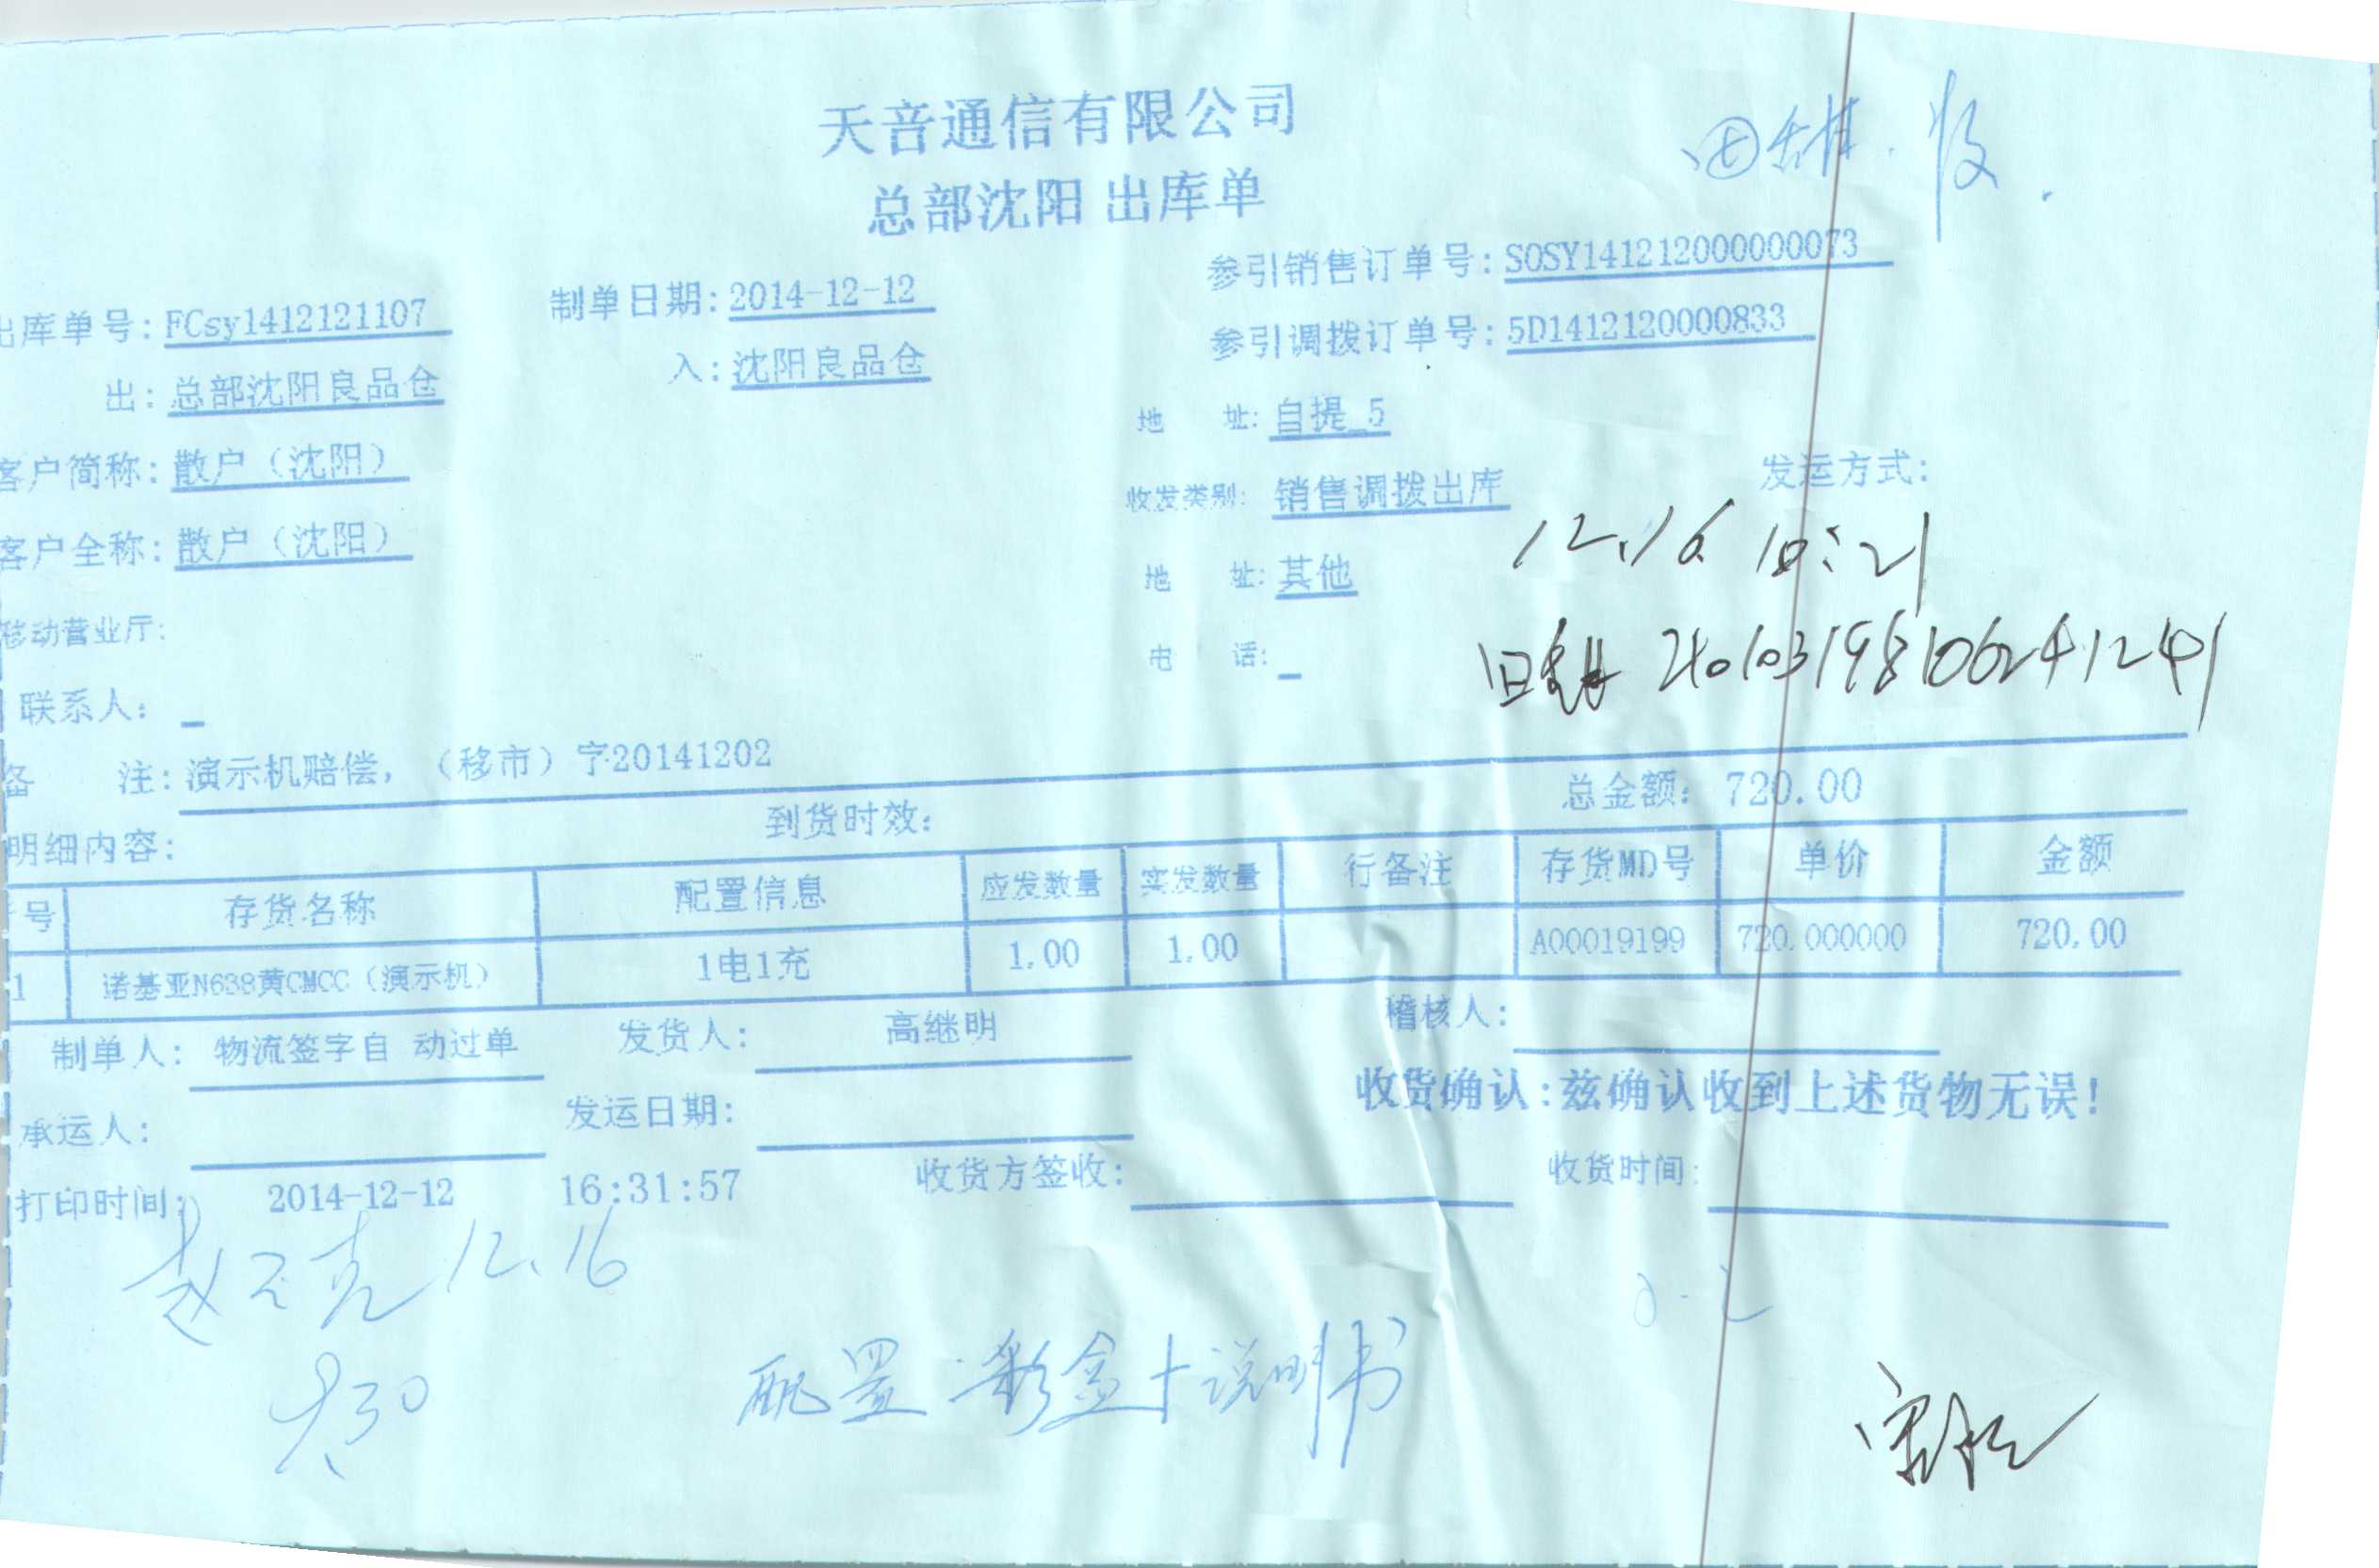 天音通信有限公司
总部沈阳 出库单
收
参引销售订单号: SOSY141212000000073
出库单号: FCsy1412121107 制单日期: 2014-12-12
参引调拨订单号: 5D1412120000833
出: 总部沈阳良品仓 入: 沈阳良品仓
地 址: 自提_5
客户简称: 散户（沈阳）
收发类别: 销售调拨出库 发运方式:
客户全称: 散户（沈阳）
12.16 10:21
地 址: 其他
移动营业厅:
电 话:
联系人:
备 注: 演示机赔偿，（移市）字20141202
总金额: 720.00
明细内容: 到货时效:
号 存货名称 配置信息 应发数量 实发数量 行备注 存货MD号 单价 金额
1 诺基亚N638黄CMCC（演示机） 1电1充 1.00 1.00 A00019199 720.000000 720.00
制单人: 物流签字自 动过单 发货人: 高继明 稽核人:
收货确认:兹确认收到上述货物无误!
承运人: 发运日期:
打印时间: 2014-12-12 16:31:57 收货方签收: 收货时间:
12.16
配置 彩盒+说明书